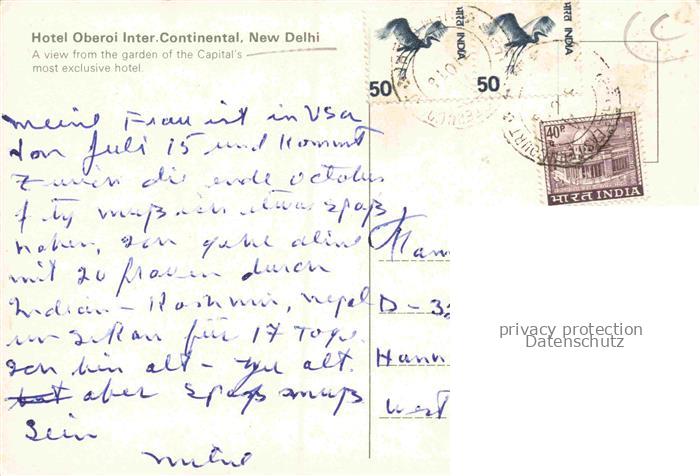 Hotel Oberoi Inter.Continental, New Delhi
A view from the garden of the Capital's
most exclusive hotel.
50
भारत INDIA
50
भारत INDIA
40P
भारत INDIA
meine Frau ist in USA
von Juli 15 und kommt
zurück die ende october
muß ich etwas spaß
haben, ich gehe aline
mit 20 frauen durch
Indian - Kashmir, nepal
für 17 Tage.
Ich bin alt - zu alt.
aber spaß muß
sein
Hann
D-3
Hann
West
privacy protection
Datenschutz